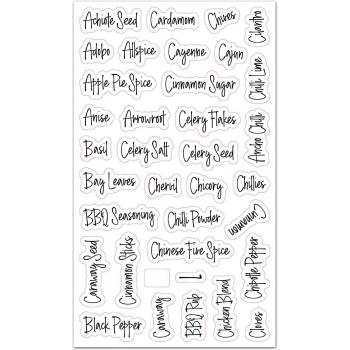 Achiote Seed
Cardamom
Chives
Cilantro
Adobo
Allspice
Cayenne
Cajun
Chili Lime
Apple Pie Spice
Cinnamon Sugar
Anise
Arrowroot
Celery Flakes
Ancho Chili
Basil
Celery Salt
Celery Seed
Bay Leaves
Chervil
Chicory
Chillies
BBQ Seasoning
Chili Powder
Cinnamon
Caraway Seed
Cinnamon Sticks
Chinese Five Spice
Chipotle Pepper
Caraway
BBQ Rub
Chicken Bland
Cloves
Black Pepper